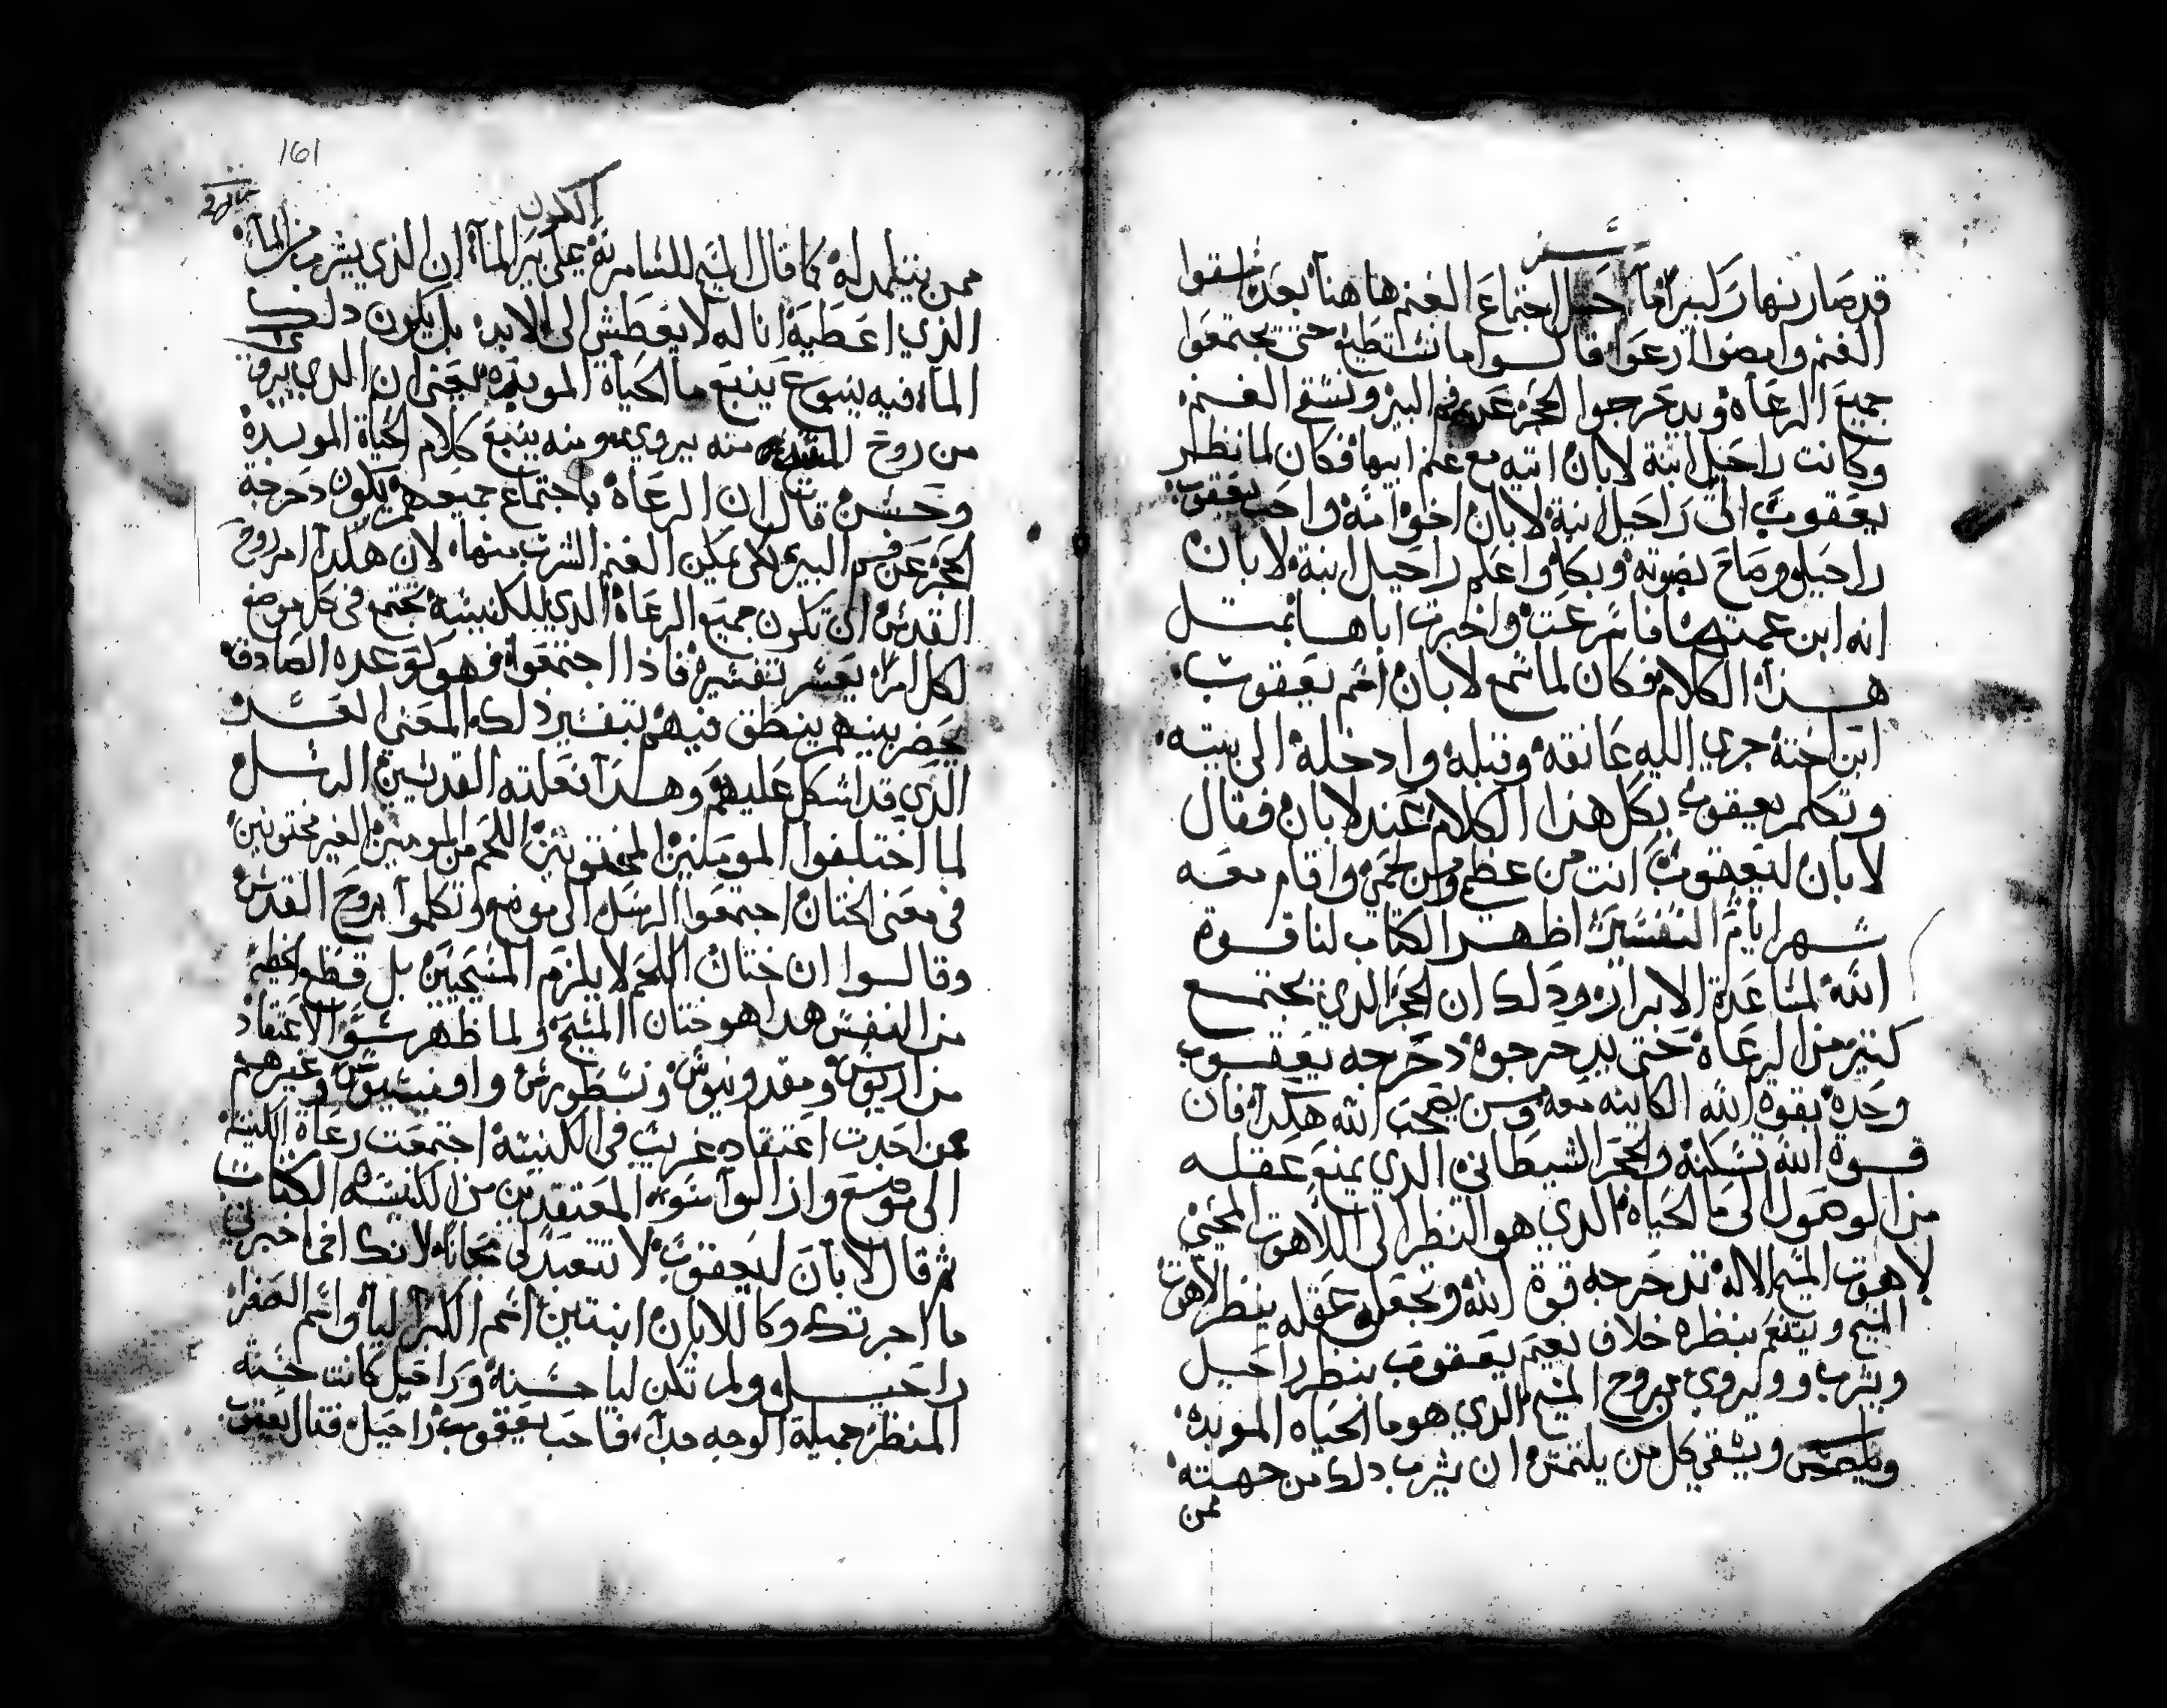 سفر
قد صار نهار كبير اما حل اجتماع الغنم هاهنا بعد اسقوا
الغنم وامضوا ارعوا قالوا ما نستطيع حتى يجتمعوا
جميع الرعاه ويدحرجوا الحجر عن فم البير ونسقي الغنم
وكانت راحيل ابنة لابان اتيه مع غنم ابيها فكان لما نظر
يعقوب الى راحيل ابنة لابان اخو امه واحب يعقوب
راحيل وصاح بصوته وبكا واعلم راحيل ابنة لابان
انه ابن عمتها فاسرعت واخبرت اباها بمثل
هذا الكلام فكان لما سمع لابان اسم يعقوب
ابن اخته جري اليه عانقه وقبله وادخله الى بيته
وتكلم يعقوب بكل هذا الكلام عند لابان فقال
لابان ليعقوب انت من عظمي ومن لحمي واقام معه
شهر ايام التفسير اظهر الكتاب لنا قوة
الله لمساعدة الابرار وذلك ان الحجر الذي يجتمع
كتير من الرعاه حتى يدحرجوه دحرجه يعقوب
وحده بقوة الله الكاينه معه ومن يصحب الله هكدا فان
قوة الله تسكنه والحجر الشيطاني الذي يمنع عقله
من الوصول الى ما الحياه الذي هو النظر الى اللاهوت المحيي
لاهوت المسيح الاله تدحرجه قوة الله وتجعل عقله ينظر لاهوت
المسيح ويتنعم بنظره خلاف نعيم يعقوب بنظر راحيل
ويشرب ويروي من روح المسيح الذي هو ما الحياه الموبده
ويسقي كل من يلتمس ان يشرب دلك من جهته
ممن
161
الكون
ممن يتلمد له كما قال المسيح للسامرية على بير الما ان الذي يشرب من الما
الذي اعطيه انا له لا يعطش الى الابد بل يكون دلك
الما فيه ينبوع ينبع ما الحياة الموبده يعني ان الدي يروي
من روح القدس منه يروي ومنه ينبع كلام الحياة الموبدة
وحسن قال ان الرعاة باجتماع جميعهم يكون دحرجة
الحجر عن فم البير لكي يمكن الغنم الشرب منها لان هكدا امر روح
القدس ان تكون جميع الرعاة الذي للكنيسة تجتمع في كل موضع
لكل امر يعسر تفسيره فاذا اجتمعوا فهو كوعده الصادق
يحضر بينهم ينطق فيهم بتفسير دلك المعني العسر
الذي قد اشكل عليهم وهدا فعلته القديسين الرسل
لما اختلفوا المومنين المختونين اللحم من المومنين الغير مختونين
في معني الختان اجتمعوا الرسل الى موضع وتكلموا بروح القدس
وقالوا ان ختان اللحم لا يلزم المسيحيين بل قطع الخطيه
من النفس هدا هو ختان المسيح ولما ظهر سو الاعتقاد
من اريوس ومقدونيوس ونسطورس واوفنيسيوس وغيرهم
ممن احدت اعتقاد غريب في الكنيسة اجتمعت رعاة الكنيسة
الى موضع وازالوا المعتقدين من الكنيسه الكتاب
ثم قال لابان ليعقوب لا تتعبد لي مجانا لانك اخي اخبرني
ما اجرتك وكان للابان ابنتين اسم الكبرا ليا واسم الصغرا
راحيل ولم تكن ليا حسنة وراحيل كانت حسنه
المنظر جميلة الوجه جدا فاحب يعقوب راحيل فقال يعقوب